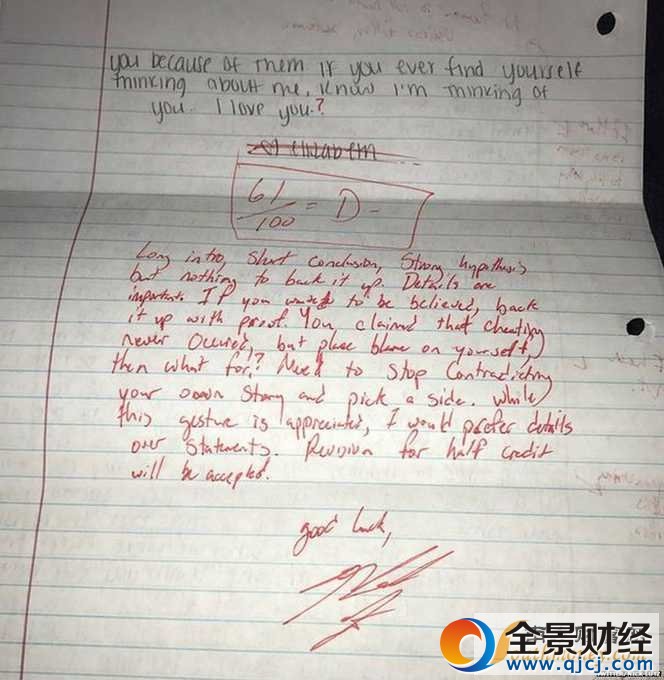 you because of them If you ever find yourself
thinking about me, know I'm thinking of
you. I love you.?
61/100 = D-
Long intro, short conclusion, Strong hypothesis
but nothing to back it up. Details are
important. If you want to be believed, back
it up with proof. You claimed that cheating
never occured, but place blame on yourself,
then what for? Need to stop contradicting
your own story and pick a side. While
this gesture is appreciated, I would prefer details
over statements. Revision for half credit
will be accepted.
good luck,
全景财经
www.qjcj.com